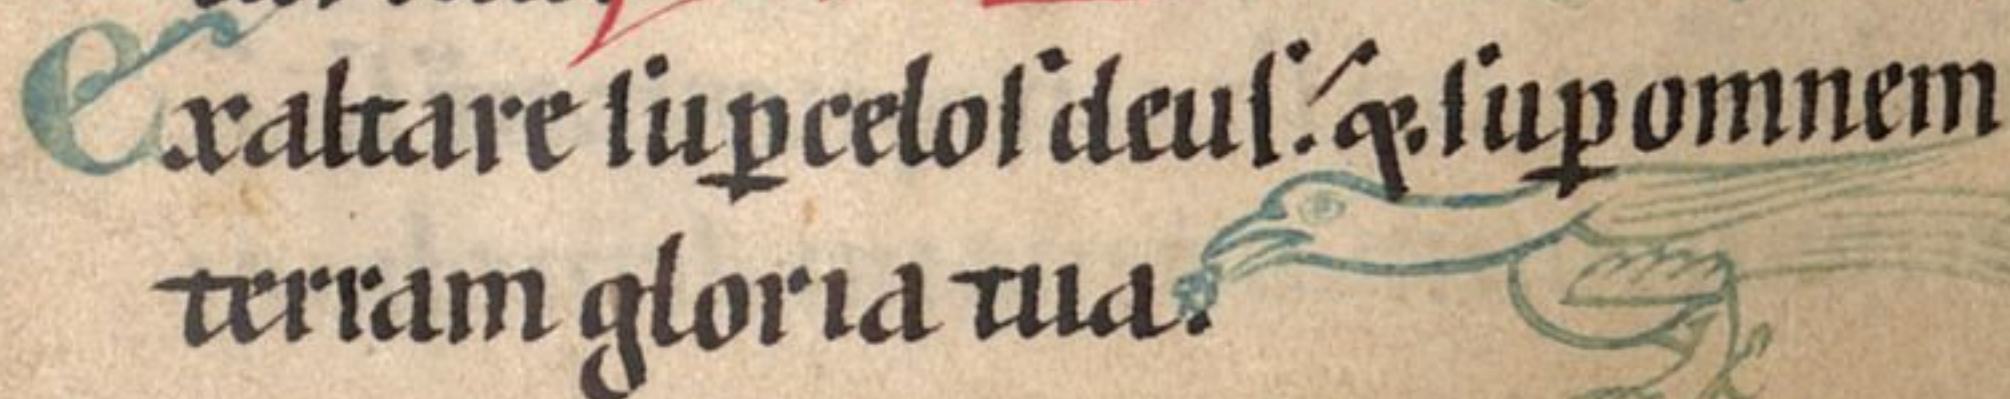 Exaltare ſuꝑ celoſ deuſ: q. ſuꝑ omnem
terram gloria tua.